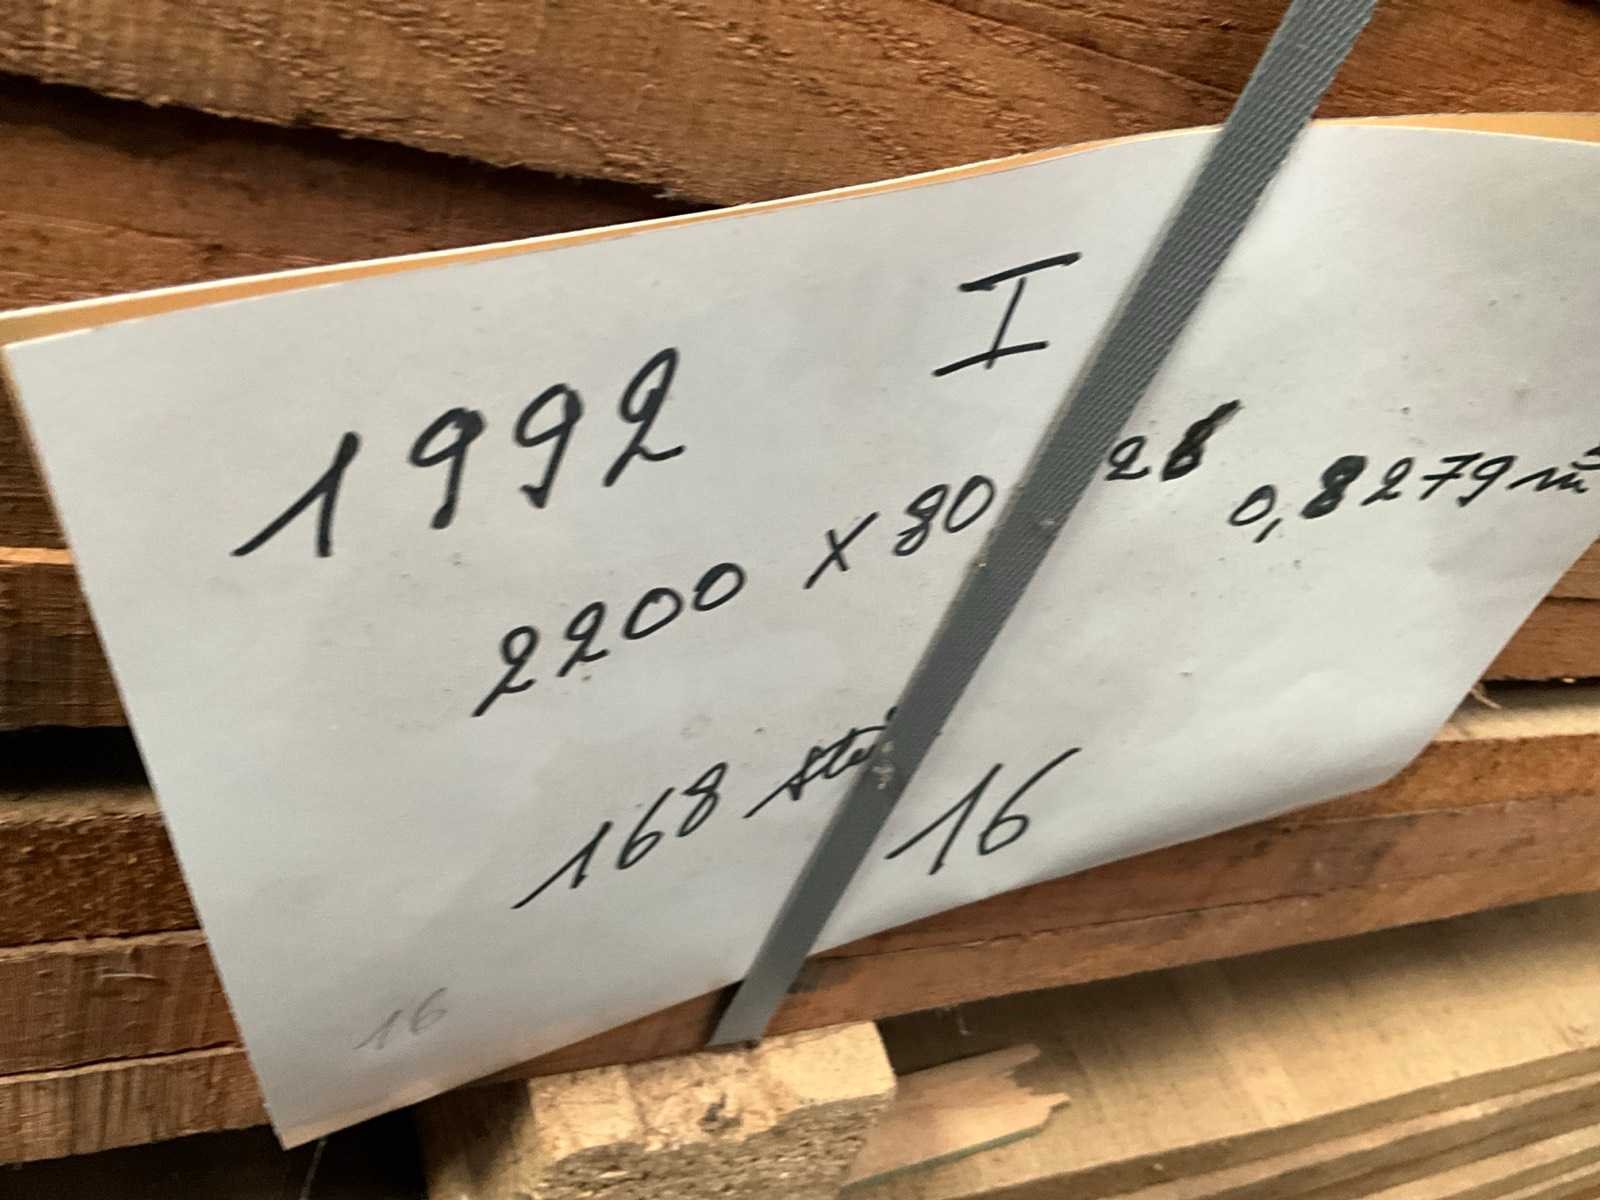 I
1992
2200 x 80 28 0,8279 m³
168
16
16